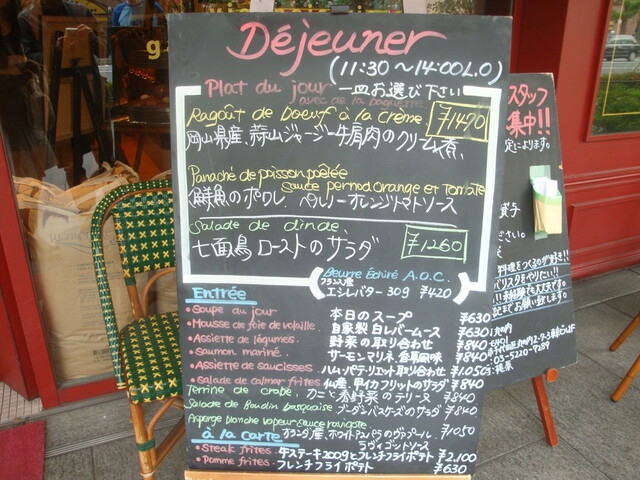 Déjeuner
(11:30～14:00 L.O)
Plat du jour 一皿お選び下さい
avec de la baguette
Ragoût de boeuf à la crème ¥1470
岡山県産、蒜山ジャージー牛肩肉のクリーム煮、
Panaché de poisson poêlée
sauce pernod orange et tomate
鮮魚のポワレ、ペルノーオレンジトマトソース
Salade de dinde,
七面鳥ローストのサラダ ¥1260
Beurre Échiré A.O.C.
フランス産
エシレバター 30g ¥420
Entrée
・Soupe du jour 本日のスープ ¥630
・Mousse de foie de volaille. 自家製 白レバームース ¥630
・Assiette de légumes. 野菜の取り合わせ ¥840
・saumon mariné. サーモンマリネ、香草風味 ¥840
・Assiette de saucisses ハム・パテ・リエット取り合わせ ¥1,050
・Salade de calmar frites 仙産、甲イカフリットのサラダ ¥840
Terrine de crabe, カニと香野菜のテリーヌ ¥840
Salade de Boudin basquaise ブーダンバスケーズのサラダ ¥840
Asperge blanche vapeur sauce ravigote
オランダ産、ホワイトアスパラのヴァプール、 ¥1050
ラヴィゴットソース
à la carte
・Steak frites. 牛ステーキ200gとフレンチフライポテト ¥2,100
・Pomme frites. フレンチフライポテト ¥630
スタッフ
集中!!
ださい。
料理をつくるのが好き!!
バリスタをやりたい!!
!!未経験でも大丈夫です。
記までお願い致します。
丸の内
03-5220-7289